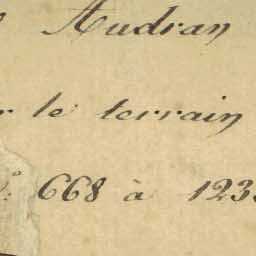 Audran
le terrain
668 à 123